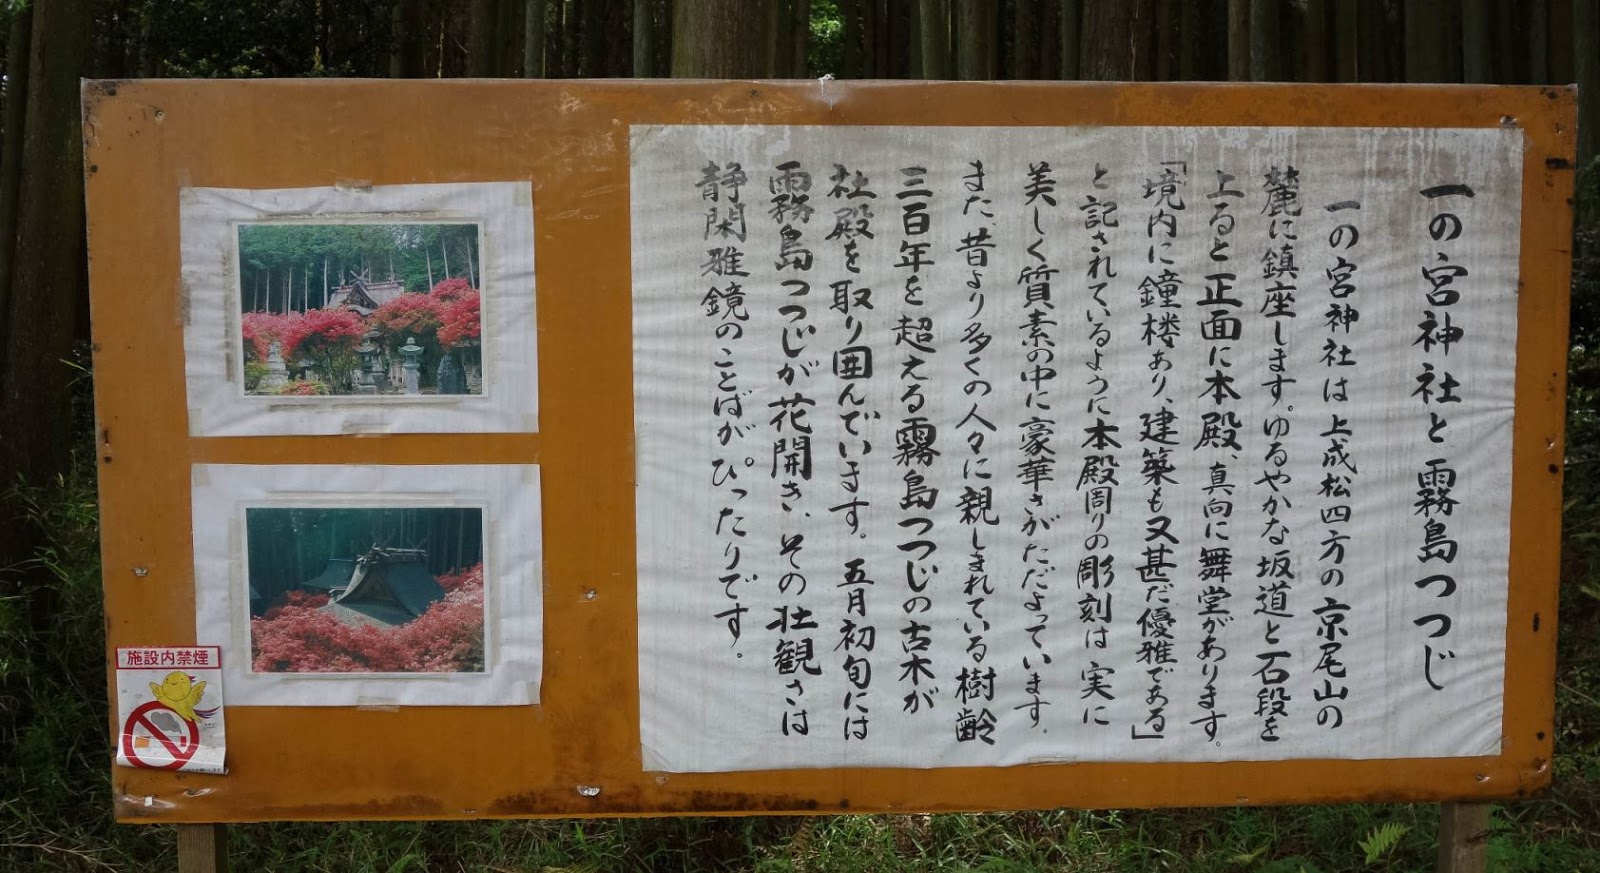 一の宮神社と霧島つつじ
一の宮神社は上成松四方の京尾山の
麓に鎮座します。ゆるやかな坂道と石段を
上ると正面に本殿、真向に舞堂があります。
「境内に鐘楼あり、建築も又甚だ優雅である」
と記されているように本殿周りの彫刻は実に
美しく質素の中に豪華さがただよっています。
また、昔より多くの人々に親しまれている樹齢
三百年を超える霧島つつじの古木が
社殿を取り囲んでいます。五月初旬には
霧島つつじが花開き、その壮観さは
静閑雅鏡のことばがぴったりです。
施設内禁煙